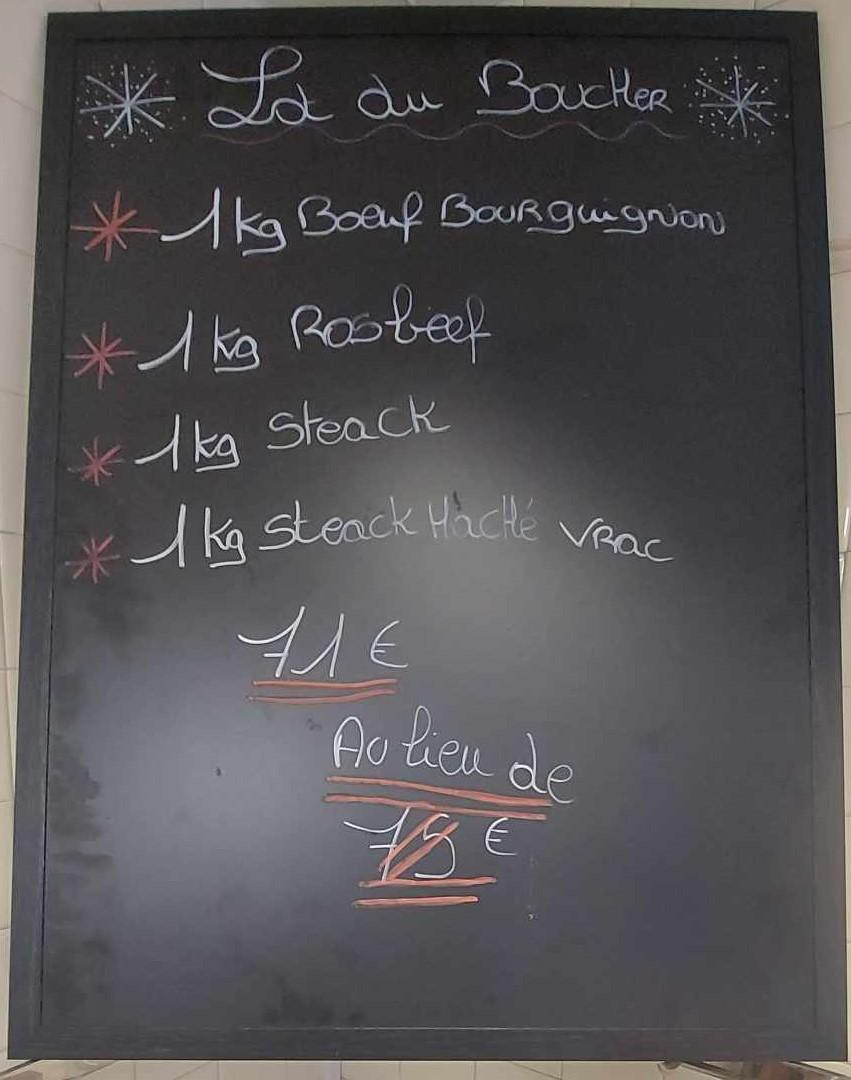 Lot du Boucher
1kg Boeuf Bourguignon
1kg Rosbeef
1kg Steack
1kg Steack Haché vrac
71€
Au lieu de
75€